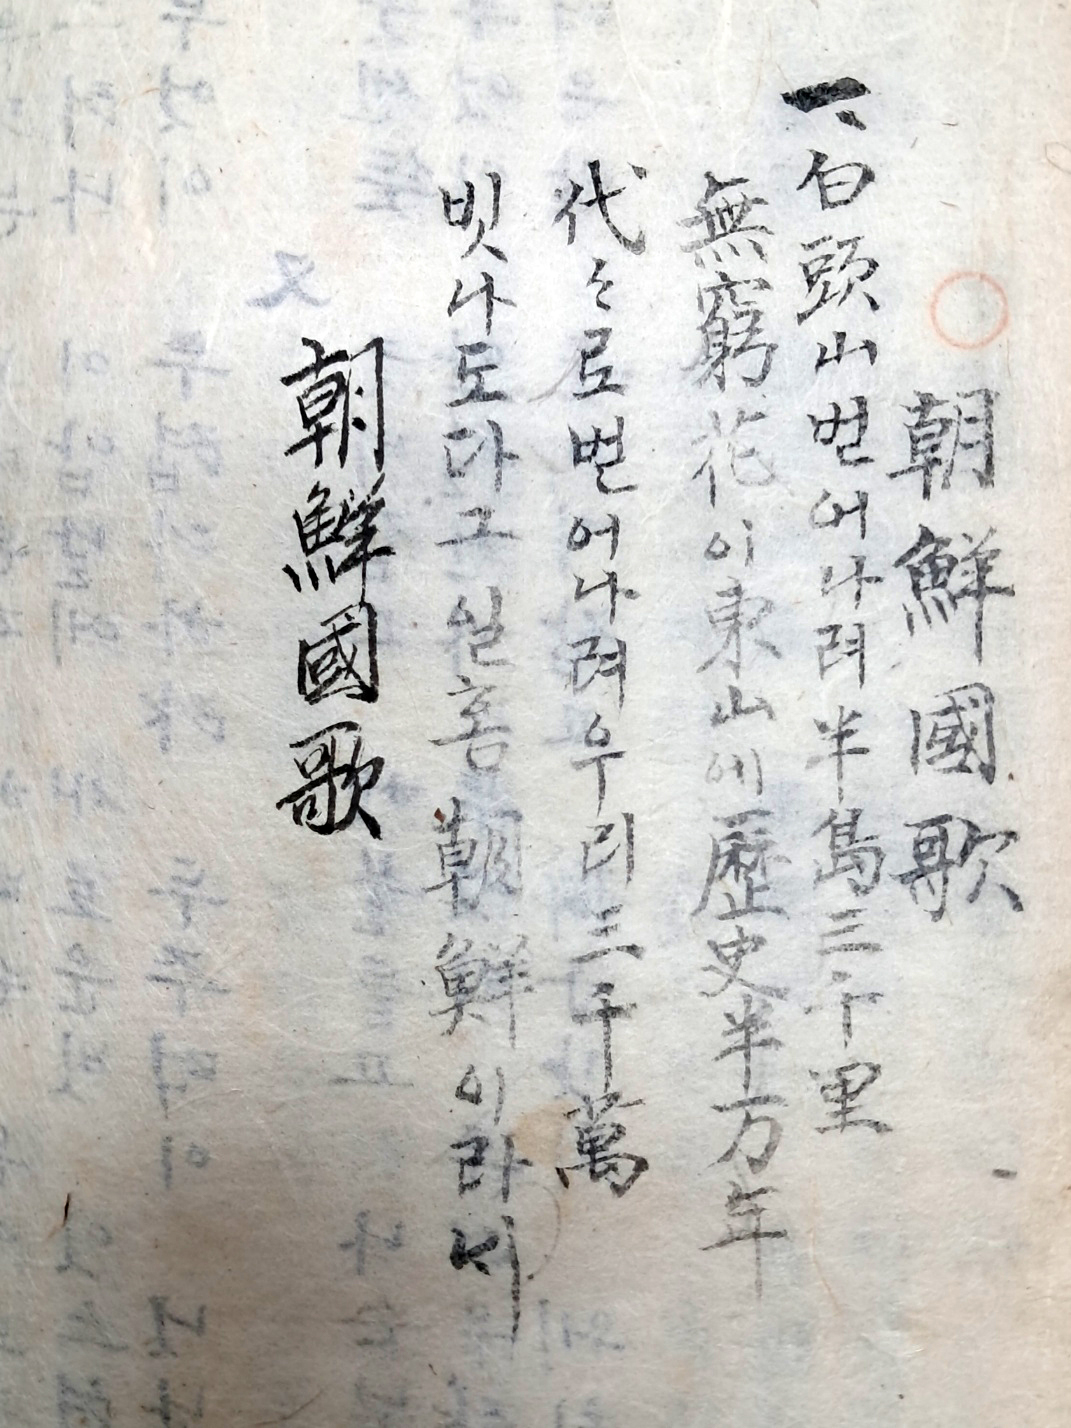 朝鮮國歌
一、白頭山벋어나려半島三千里
無窮花이東山에歷史半万年
代々로벋어나려우리三千萬
빗나도다그일홈朝鮮이라네
又
朝鮮國歌